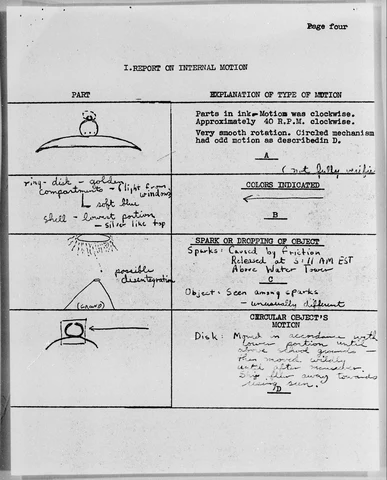 Page four
I. REPORT ON INTERNAL MOTION
PART
EXPLANATION OF TYPE OF MOTION
Parts in ink- Motion was clockwise.
Approximately 40 R.P.M. clockwise.
Very smooth rotation. Circled mechanism
had odd motion as describedin D.
A
(not fully verified
ring - disk - golden
compartments - (light from
windows)
soft blue
shell - lowest portion
- silver like top
COLORS INDICATED
B
possible
disintegration
SPARK OR DROPPING OF OBJECT
Sparks: Caused by friction
Released at 5:11 AM EST
Above Water Tower
C
Object: Seen among sparks
- unusually different
CIRCULAR OBJECT'S
MOTION
Disk: Moved in accordance with
lower portion until
above
then moved wildly
until after
Ship flew away towards
rising sun.
D